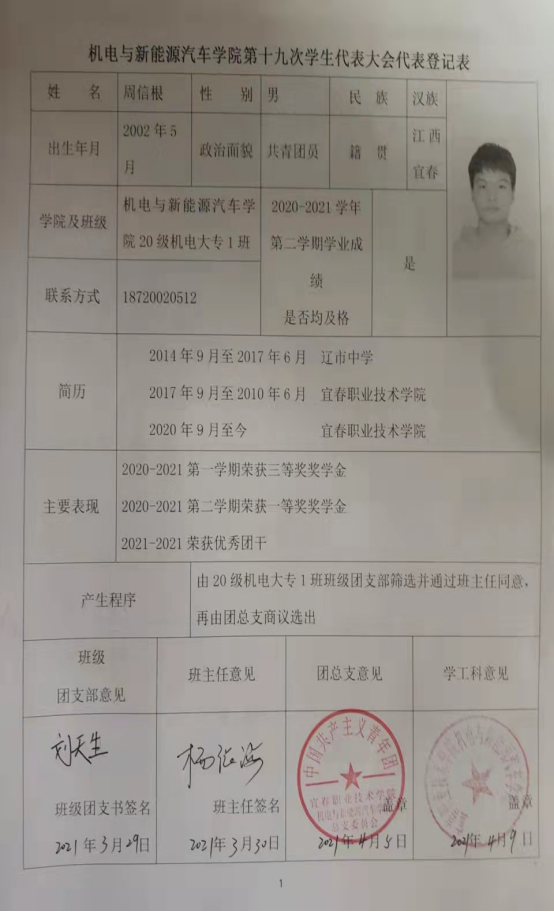 机电与新能源汽车学院第十九次学生代表大会代表登记表
姓 名 周信根 性 别 男 民 族 汉族
出生年月 2002年5月 政治面貌 共青团员 籍 贯 江西宜春
学院及班级 机电与新能源汽车学院20级机电大专1班
2020-2021学年第二学期学业成绩是否均及格 是
联系方式 18720020512
简历
2014年9月至2017年6月 辽市中学
2017年9月至2010年6月 宜春职业技术学院
2020年9月至今 宜春职业技术学院
主要表现
2020-2021第一学期荣获三等奖奖学金
2020-2021第二学期荣获一等奖奖学金
2021-2021荣获优秀团干
产生程序
由20级机电大专1班班级团支部筛选并通过班主任同意,
再由团总支商议选出
班级
团支部意见 班主任意见 团总支意见 学工科意见
刘天生
中国共产主义青年团
宜春职业技术学院
机电与新能源汽车学院
总支委员会
班级团支书签名 班主任签名 盖章 盖章
2021年3月29日 2021年3月30日 2021年4月5日 2021年4月9日
1